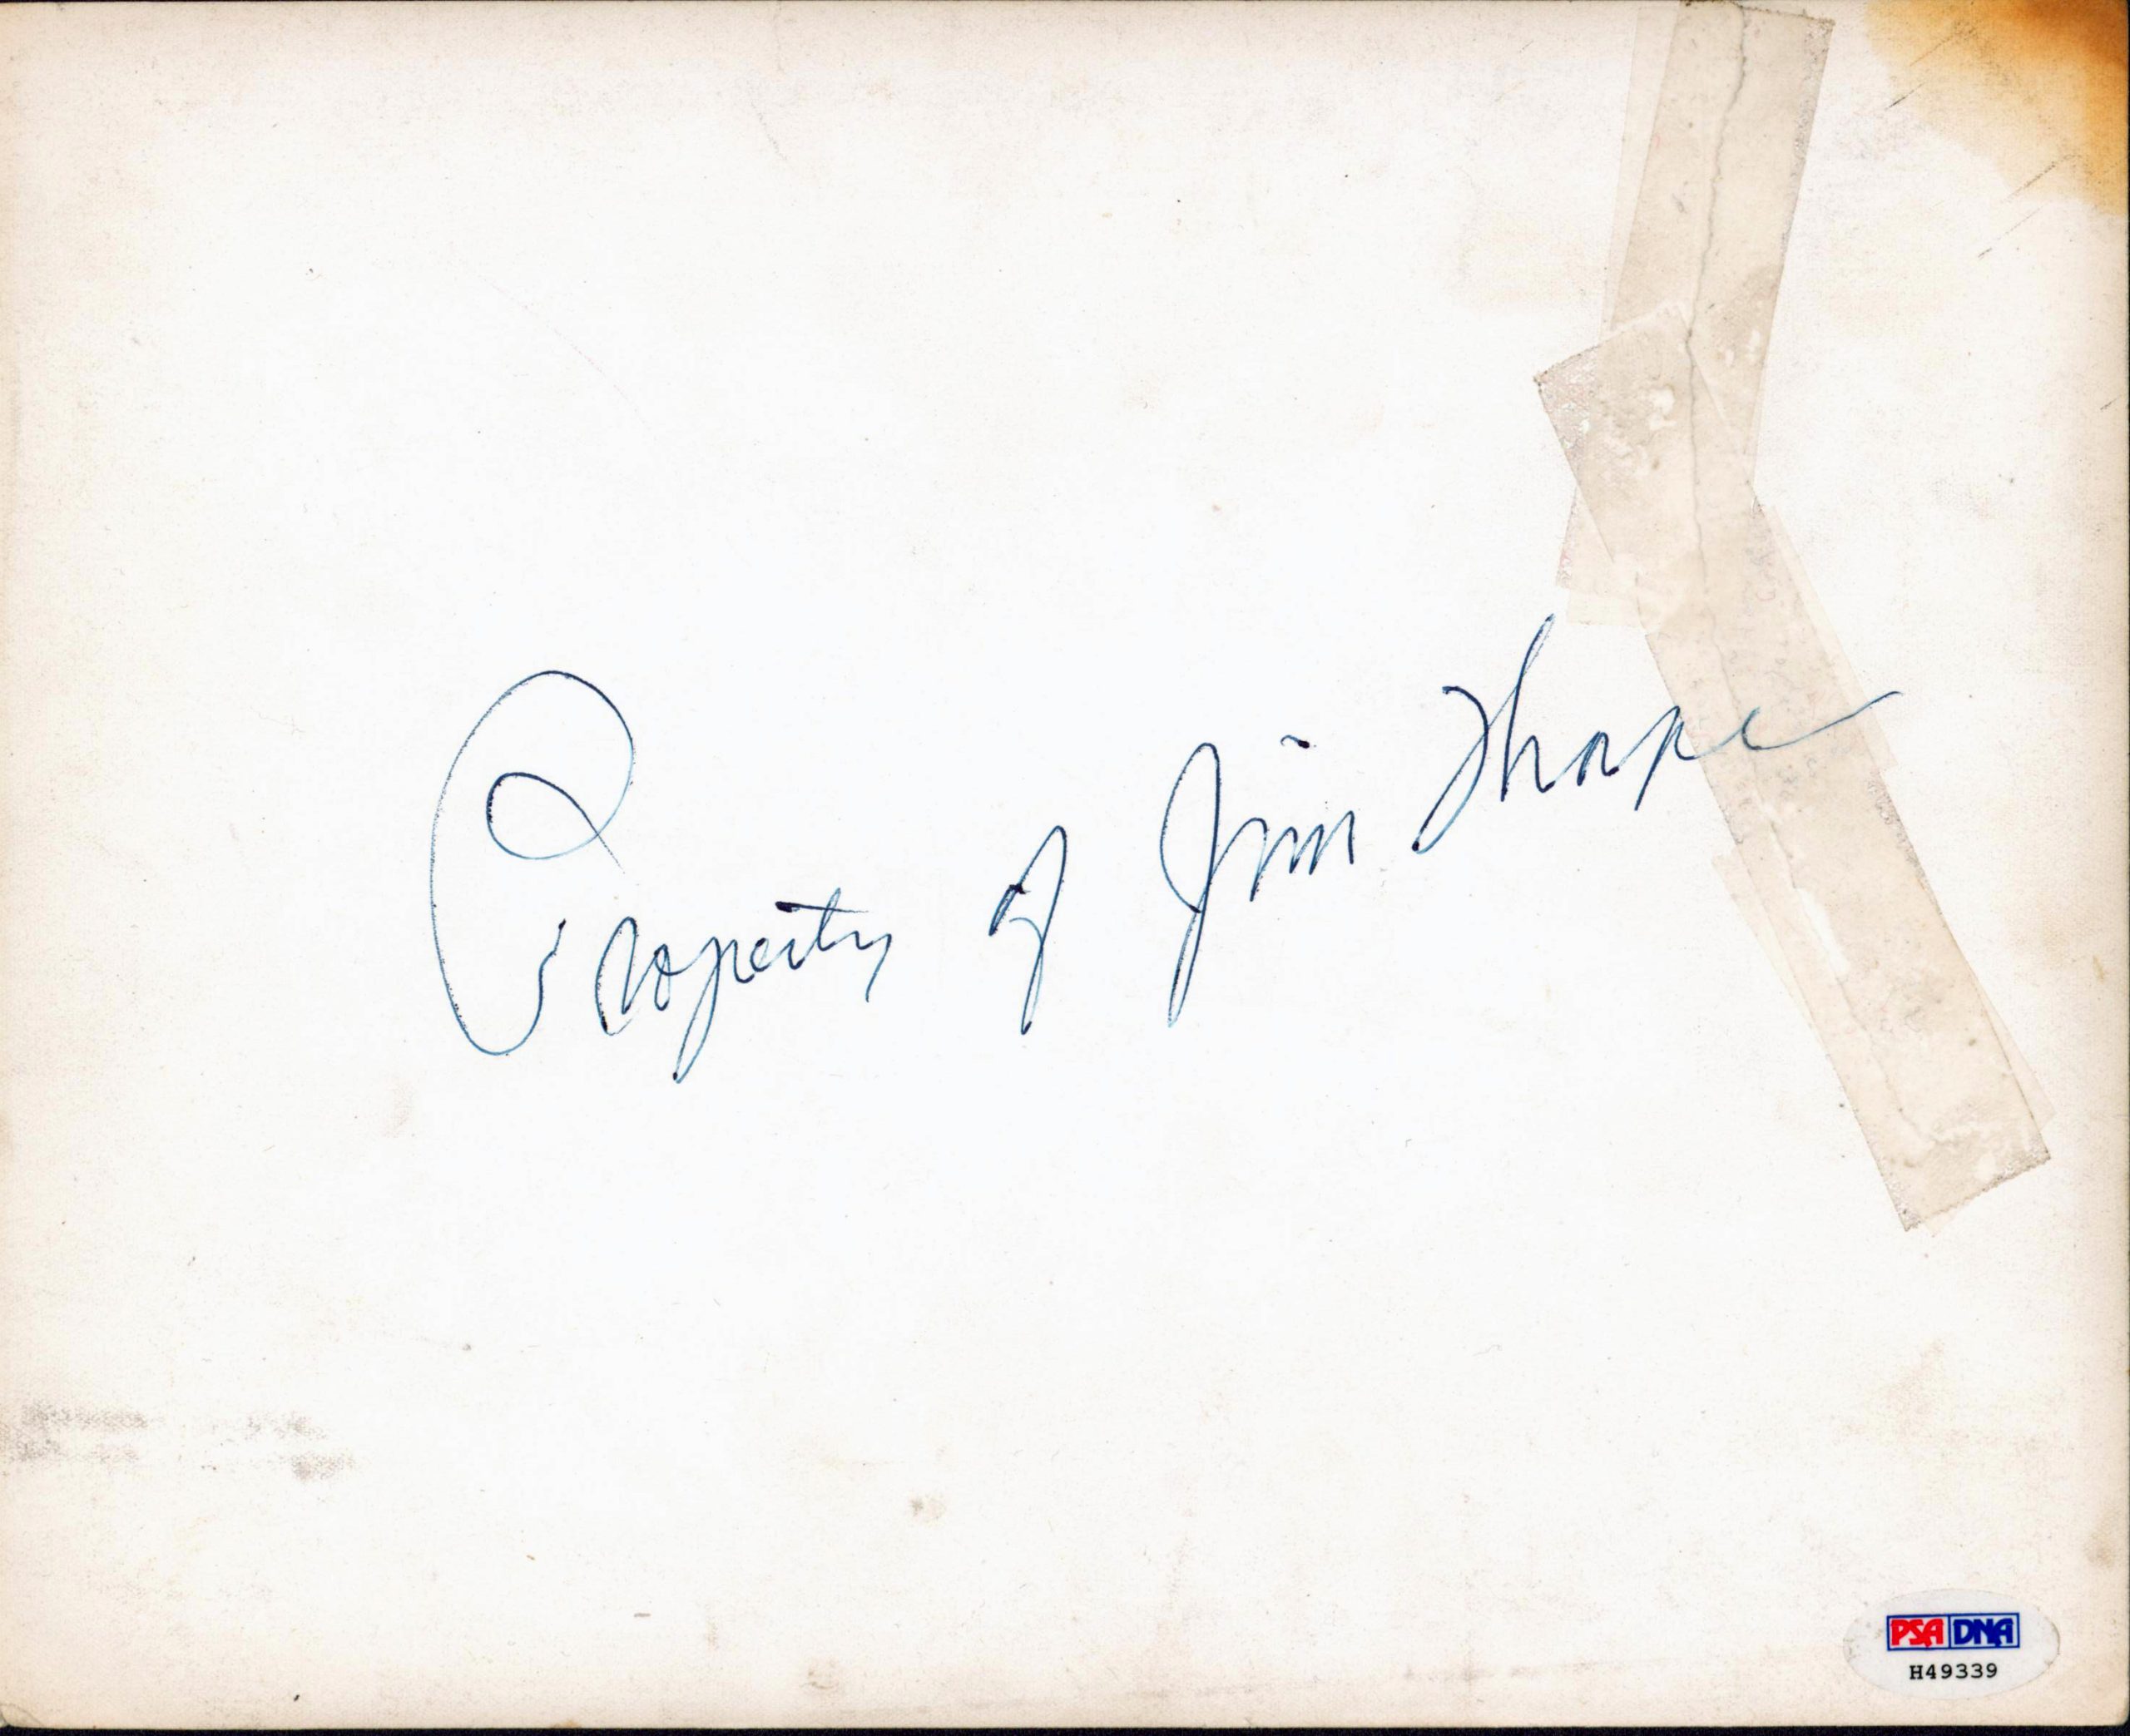 Property of Jim Thorpe
PSA DNA
H49339